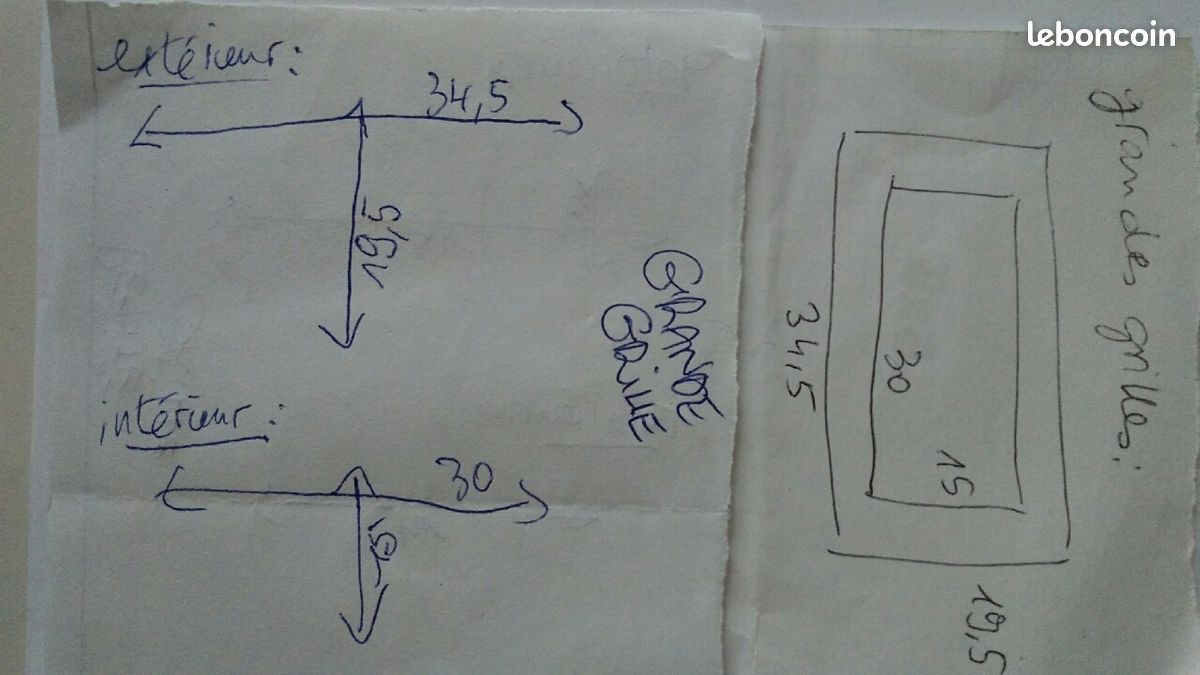 leboncoin
extérieur :
34,5
19,5
GRANDE
GRILLE
intérieur :
30
15
grandes grilles :
34,5
30
15
19,5